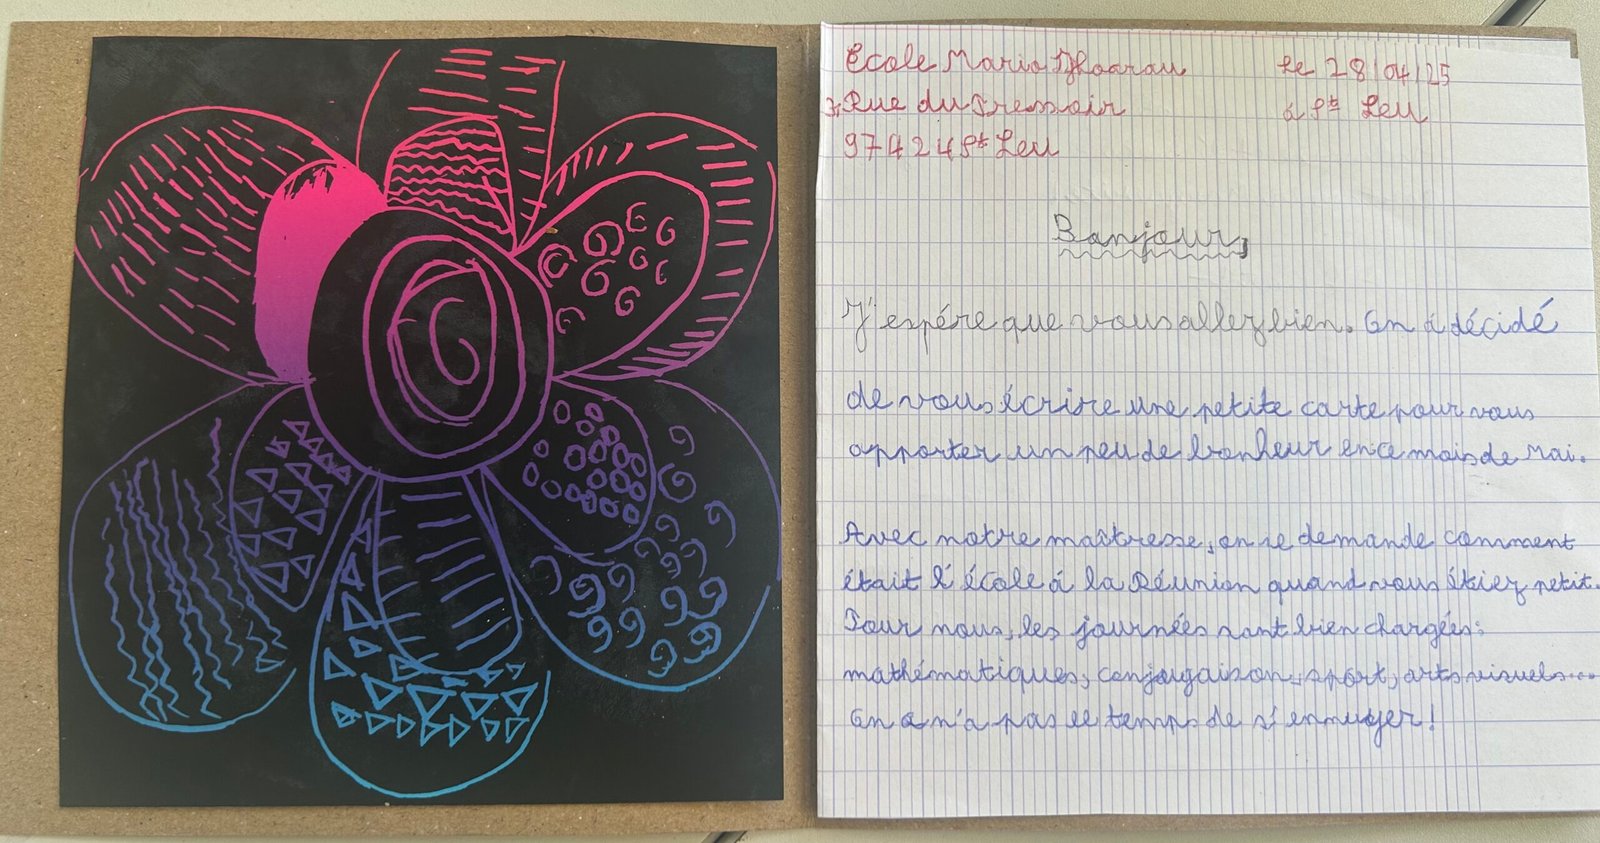 école Mario Hoarau le 28/04/25
3, Rue du Pressoir à St Leu
97424 St Leu
Bonjour,
J'espére que vous allez bien. On à décidé
de vous écrire une petite carte pour vous
apporter un peu de bonheur en ce mois de Mai.
Avec notre maîtresse, on se demande comment
était l'école à la Réunion quand vous étiez petit.
Pour nous, les journées sont bien chargées:
mathématiques, conjugaison, sport, arts visuels...
On a n'a pas le temps de s'ennuyer!